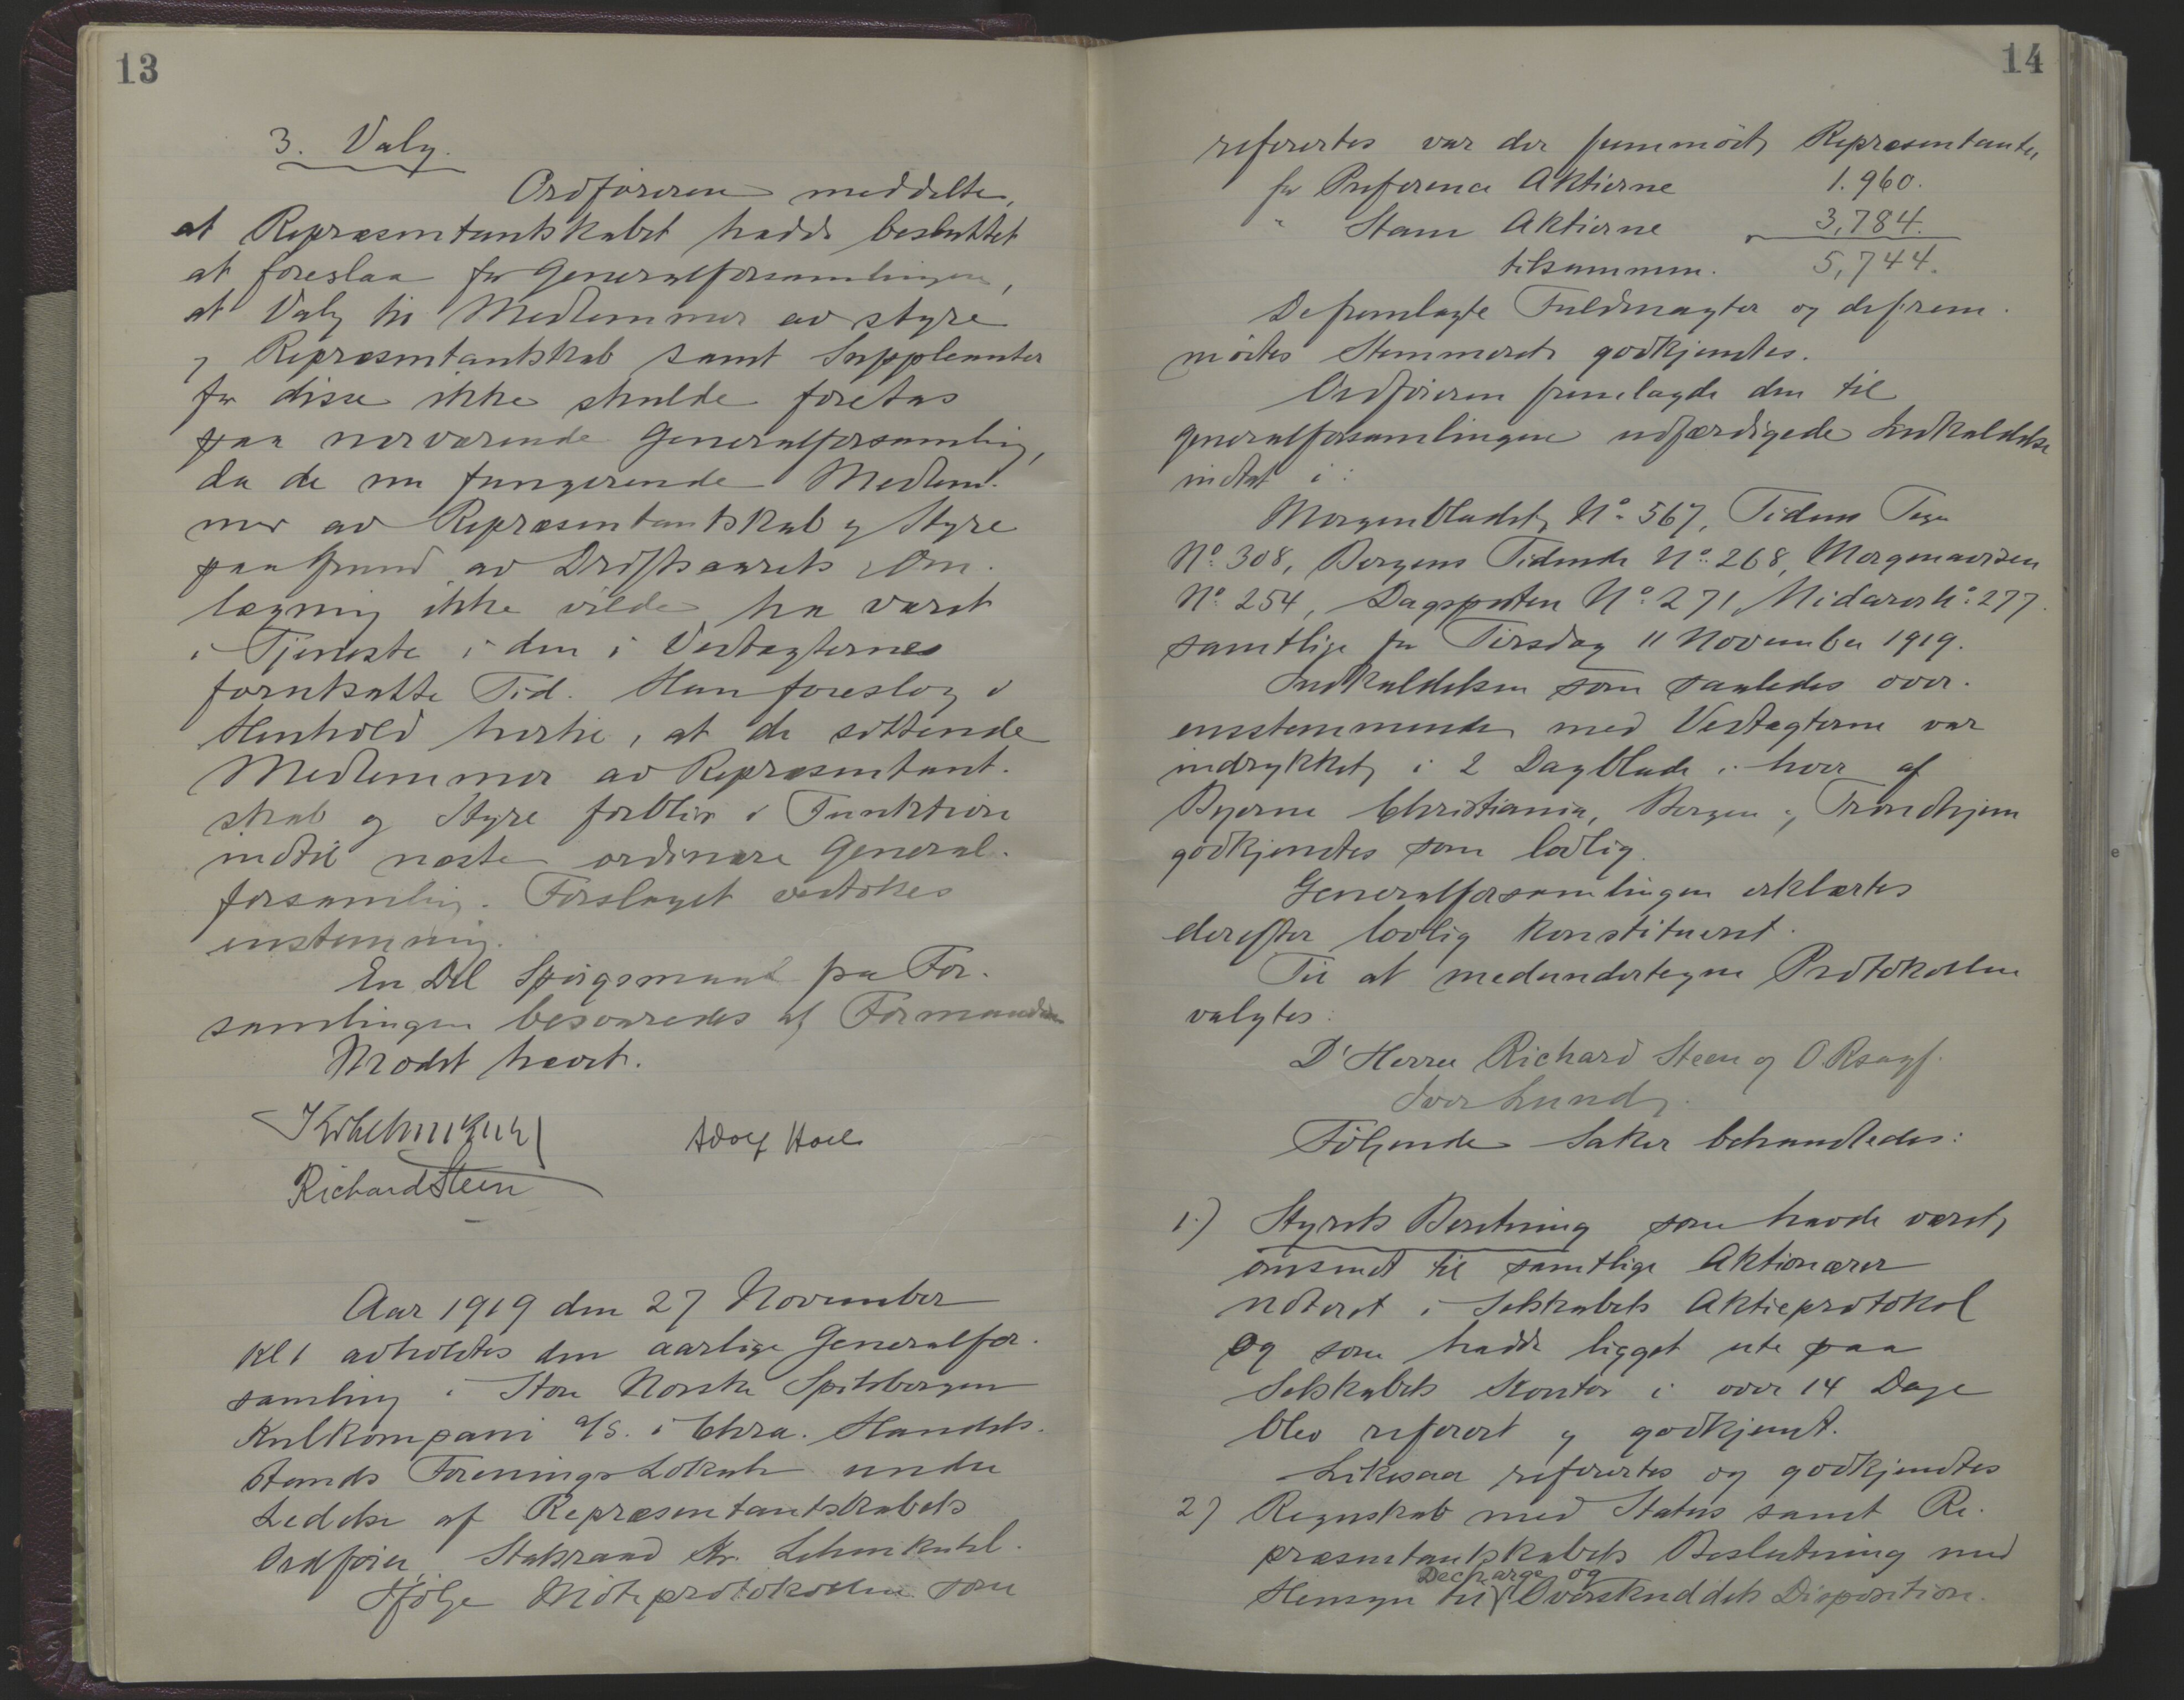 13
3. Valg.
Ordføreren meddelte,
at Repræsentantskabet hadde besluttet
at foreslaa for Generalforsamlingen,
at Valg til Medlemmer av styre
og Repræsentantskab samt Suppleanter
for disse ikke skulde foretas
paa nærværende Generalforsamling,
da de nu fungerende Medlem-
mer av Repræsentantskab og Styre
paa Grund av Driftsaarets Om-
lægning ikke vilde ha været
i Tjeneste i den i Vedtægternes
forutsatte Tid. Han foreslog i
Henhold hertil, at de sittende
Medlemmer av Repræsentant-
skab og Styre forblir i Funktion
indtil næste ordinære General-
forsamling. Forslaget vedtokes
enstemmig.
En Del Spørgsmaal fra For-
samlingen besvaredes af Formanden
Mødet hævet.
Kr Lehmkuhl
Adolf Hoel
Richard Steen
Aar 1919 den 27 November
Kl 1 avholdtes den aarlige Generalfor-
samling i Store Norske Spitsbergen
Kulkompani A/S. i Chra. Handels-
stands Forenings Lokale under
Ledelse af Repræsentantskabets
Ordfører, Statsraad Kr. Lehmkuhl.
Ifølge Møteprotokollen som
14
refertes var der fremmødt Repræsentanter
for Preference Aktierne 1.960.
" Stam Aktierne 3,784.
tilsammen. 5,744.
De fremlagte Fuldmagter og de frem-
mødtes Stemmeret godkjendtes.
Ordføreren fremlagde den til
Generalforsamlingen udfærdigede Indkaldelse
indtat i:
Morgenbladet No 567, Tidens Tegn
No 308, Bergens Tidende No 268, Morgenavisen
No 254, Dagsposten No 271, Nidaros No 277.
samtlige for Tirsdag 11 November 1919.
Indkaldelsen som saaledes over-
ensstemmende med Vedtægterne var
indrykket i 2 Dagblade i hver af
Byerne Christiania, Bergen og Trondhjem
godkjendtes som lovlig.
Generalforsamlingen erklærtes
derefter lovlig konstitueret.
Til at medundertegne Protokollen
valgtes:
D'Herrer Richard Steen og O.R.sagf.
Iver Lund.
Følgende Saker behandledes:
1.) Styrets Beretning som havde været
omsendt til samtlige Aktionærer
noteret i Selskabets Aktieprotokol
og som hadde ligget ute paa
Selskabets Kontor i over 14 Dage
blev referert og godkjent.
Likesaa refertes og godkjendtes
2) Regnskab med Status samt Re-
præsentantskabets Beslutning med
Decharge og
Hensyn til Overskuddets Disposition.